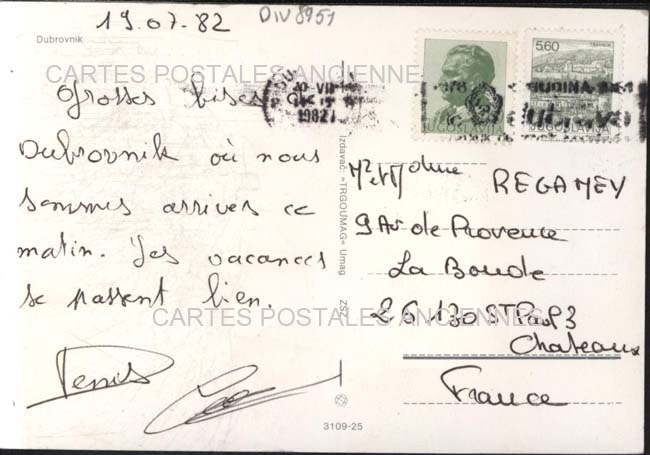 19.07.82
DIV8951
Dubrovnik
CARTES POSTALES ANCIENNE
Grosses bises
Dubrovnik où nous
sommes arrivés ce
matin. Les vacances
se passent bien.
CARTES POSTALES ANCIENNES
Izdavač: »TRGOUMAG« Umag
1982
JUGOSLAVIJA
5.60
JUGOSLAVIJA
Mr et Mme REGAMEY
9 Av de Provence
La Baude
26130 ST Paul 3
Chateaux
France
3109-25